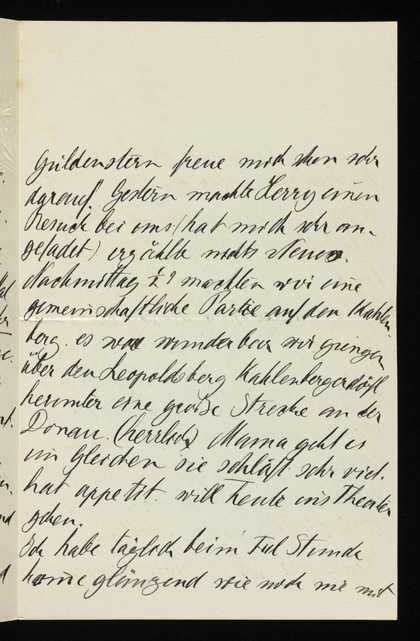 Güldenstern freue mich schon sehr
darauf. Gestern machte Herry einen
Besuch bei uns (hat mich sehr an-
geödet) erzählte nichts Neues.
Nachmittag ½ machten wir eine
gemeinschaftliche Partie auf den Kahlen-
berg. es war wunderbar wir gingen
über den Leopoldsberg Kahlenbergerdörfl
herunter eine große Strecke an der
Donau. (herrlich) Mama geht es
im Gleichen sie schläft sehr viel.
hat appetit. will heute ins Theater
gehen.
Ich habe täglich beim Stunde
glänzend wie noch nie mit